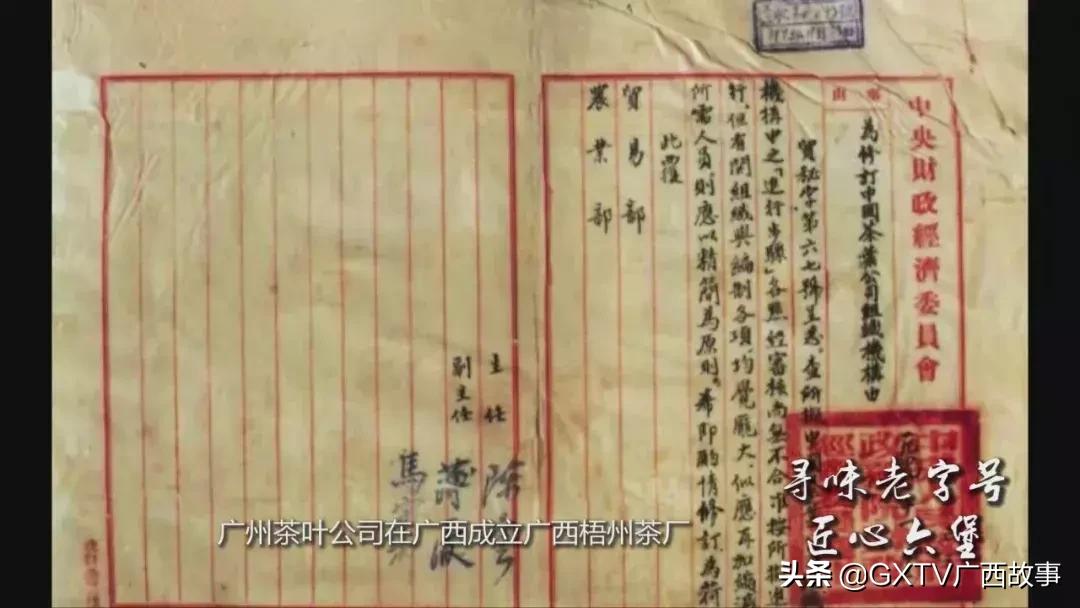 中央財政經濟委員會
事由
為修訂中國茶葉公司組織機構由
貿秘字第六七號呈悉。查所擬中國
機構中之「進行步驟」各點經審核尚無不合准按所擬進
行,但有關組織與編制各項,均覺龐大、似應再加縮減
所需人員,則應以精簡為原則。希即酌情修訂為荷
此覆
貿易部
農業部
主任
副主任
广州茶叶公司在广西成立广西梧州茶厂
寻味老字号
匠心六堡
头条 @GXTV广西故事